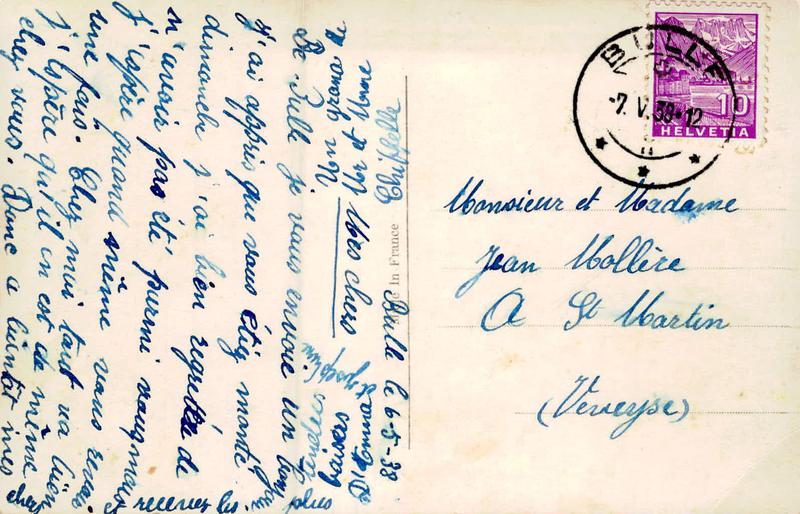 Bulle le 6-5-38
Mes chers
De Bulle je vous envoie un bon
J'ai appris que vous étiez monté
dimanche j'ai bien regretté de
n'avoir pas été parmi vous, mais
j'éspère quand même vous revoir
une fois. Chez moi tout va bien
j'éspère qu'il en est de même
chez vous. Donc a bientôt mes
chers et recevez les plus
tendres
baisers
Un grand
Mr et Mme
Made In France
BULLE
-7.V.38-12
10
HELVETIA
Monsieur et Madame
Jean Mollère
A St Martin
(Veveyse)